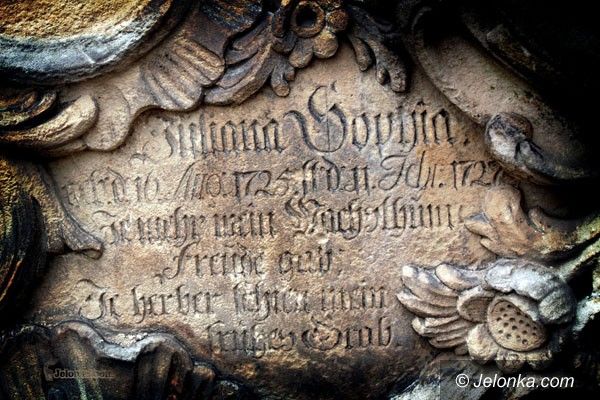 Juliana Sophia.
geb. d. 16. Aug. 1725. st. d. 11. Febr. 1727
Je mehr mein Wachsthum
Freude gab,
Je herber schien mein
frühes Grab.
Jelonka.com
© Jelonka.com